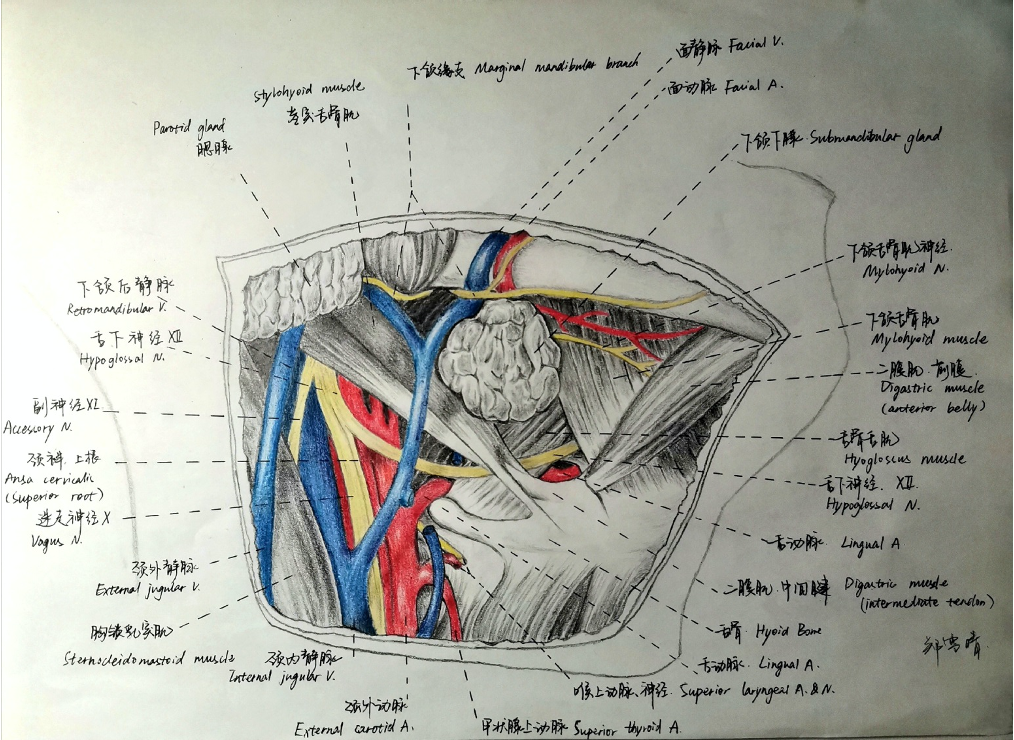 面静脉 Facial V.
下颌缘支 Marginal mandibular branch
面动脉 Facial A.
stylohyoid muscle
茎突舌骨肌
Parotid gland
腮腺
下颌下腺 Submandibular gland
下颌舌骨肌神经.
Mylohyoid N.
下颌后静脉
Retromandibular V.
舌下神经 XII
Hypoglossal N.
下颌舌骨肌
Mylohyoid muscle
二腹肌.前腹.
Digastric muscle
(anterior belly)
副神经 XI
Accessory N.
舌骨舌肌
Hyogloscus muscle
颈袢.上根
Ansa cervicalic
(superior root)
舌下神经. XII
Hypoglossal N.
迷走神经 X
Vagus N.
舌动脉 Lingual A
颈外静脉
External jugular V.
二腹肌.中间腱 Digastric muscle
(intermediate tendon)
胸锁乳突肌
Sternocleidomastoid muscle
舌骨 Hyoid Bone
颈内静脉
Internal jugular V.
舌动脉. Lingual A.
喉上动脉、神经. Superior laryngeal A. & N.
颈外动脉
External carotid A.
甲状腺上动脉 Superior thyroid A.